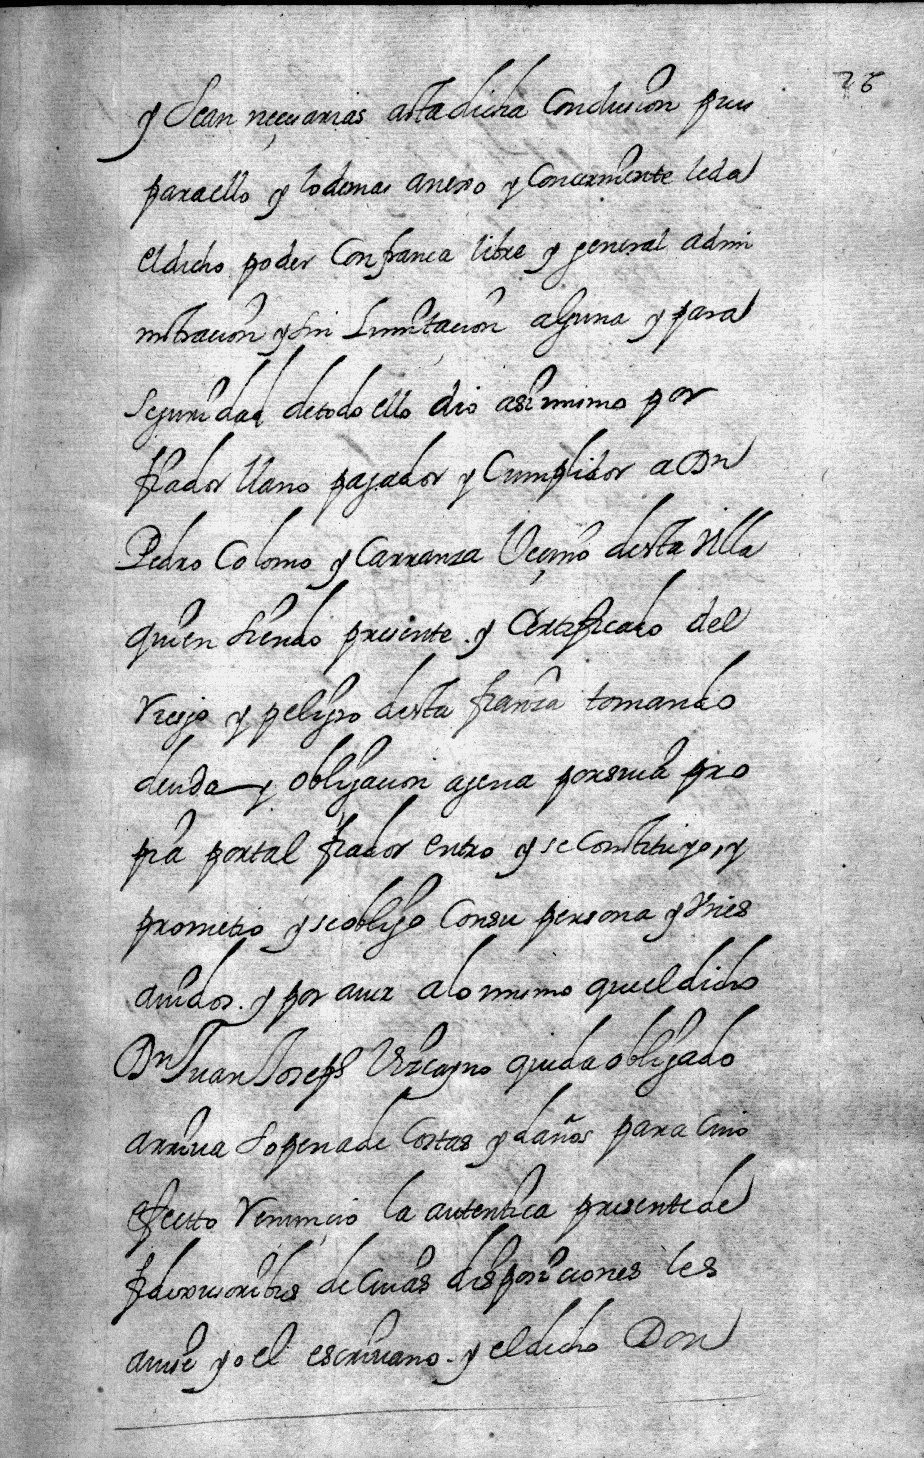 26
y sean neçesarias asta dicha Conclusion pues
para ello y lo demas anexo y Concerniente le da
el dicho poder Con franca libre y general admi
nistracion y sin Limitaçion alguna y para
seguridad de todo ello dio asimismo por
fiador llano pagador y Cumplidor a Dn
Pedro Colomo y Carranza Veçino desta Villa
quien siendo presente y Certificado del
riesgo y peligro desta fianza tomando
deuda y obligacion agena por suia pro
pia por tal fiador entro y se Constituyo, y
prometio y se obligo Con su persona y vnes
auidos y por auer a lo mismo que el dicho
Dn Juan Joseph Vizcayno queda obligado
arriua so pena de Costas y daños para Cuio
efectto renunçio la autentica presente de
fideiusoribus de Cuias disposiciones les
auise yo el escriuano y el dicho Don